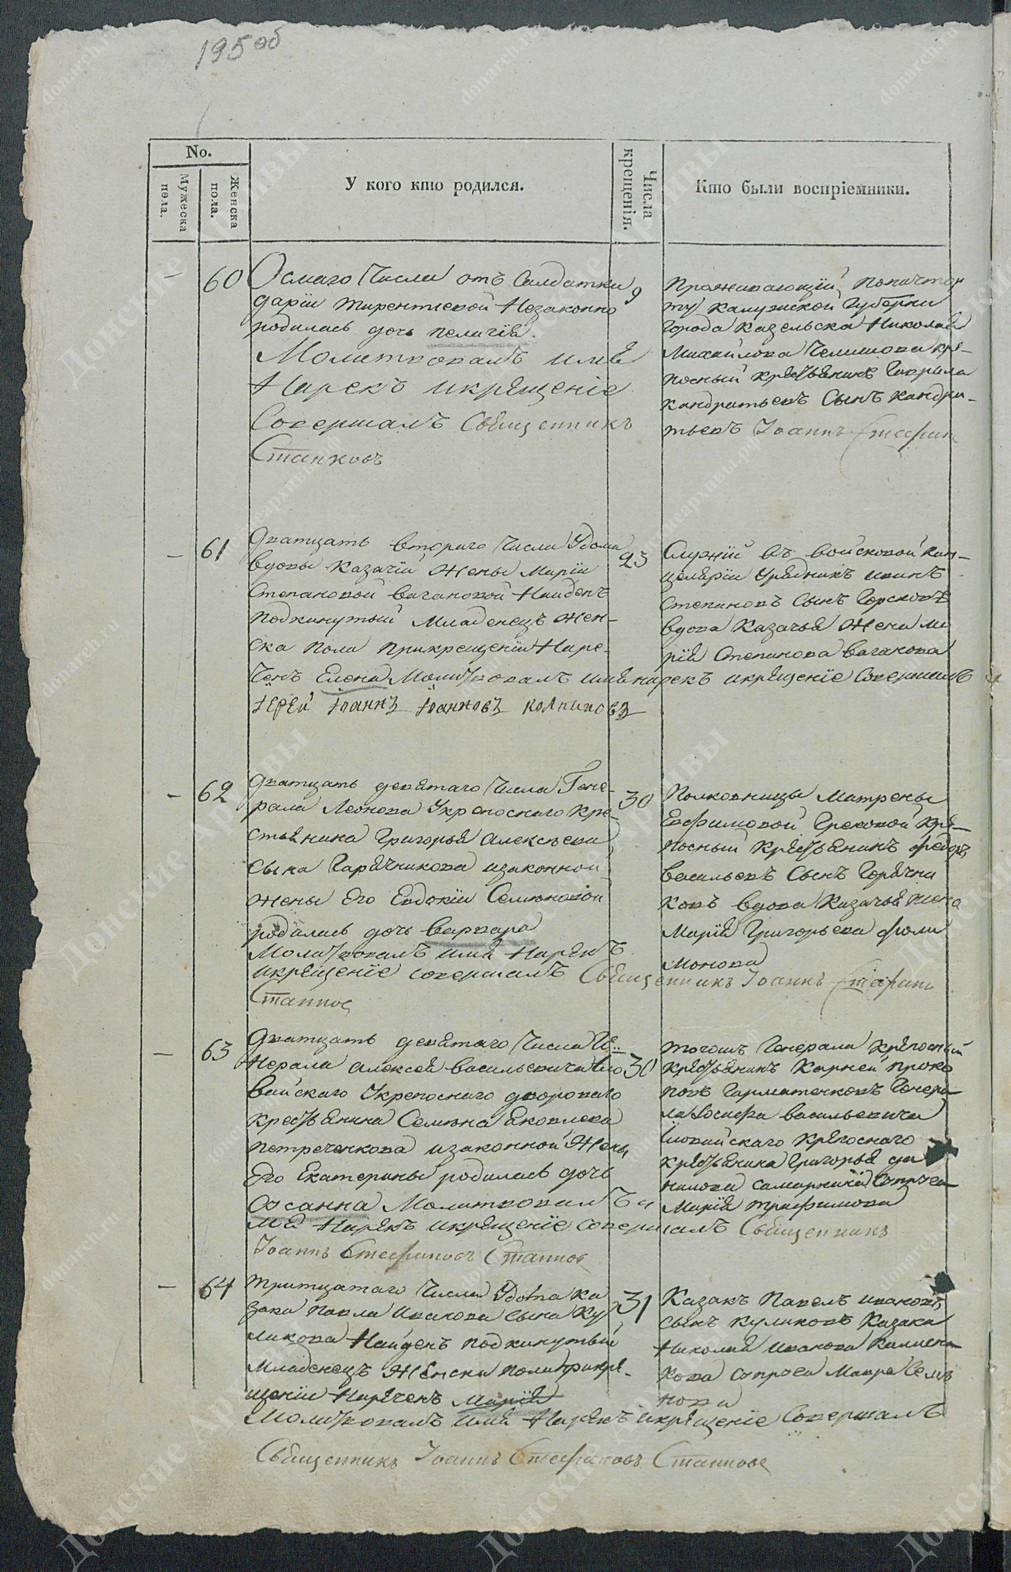 195 об
No.
Мужеска пола.
Женска пола.
У кого кто родился.
Числа крещенія.
Кто были воспріемники.
— 60
Осмаго Числа отъ Салдатки
даріи терентьевой Незаконно
родилась дочь пелагія.
Молитвовалъ имя
Нарекъ икрещеніе
Совершалъ Священникъ
Станковъ
9
Проживающій
Калужской Губерни
Города Казельска Николая
Михайлова Челищова крѣ–
посный крестьянинъ Гаврила
Кандратьевъ Сынъ Кандра–
тьевъ Іоаннъ Стефан
— 61
дватцать втораго Числа Удома
вдовы Казачій Жены Маріи
Степановой вагановой Найденъ
Подкинутый Младенецъ жен–
ска пола Прикрещеніи Наре–
Ченъ Елена Молитвовалъ имя нарекъ икрещеніе Совершалъ
Іерей Іоаннъ Іоанновъ
23
Служій въ войсковой кан–
целяріи Урядникъ иванъ
Степановъ Сынъ
вдова Казачья Жена Ма
рія Степанова ваганова
— 62
дватцать девятаго Числа Гене–
рала Леонова Укрепоснаго Кре–
стьянина Григорья Алексѣева
Сына Гарячникова изаконной
жены Его Евдокіи Семионовой
родилась дочь варвара
Молитвовалъ имя Нарекъ
икрещеніе совершалъ Священникъ Іоаннъ Стефан
Станков
30
Полковницы Матрены
Ефимовой Грековой Крѣ–
посный Крестьянинъ федоръ
васильевъ Сынъ Горячни
ковъ вдова Казачья жена
Марія Григорьева фили
монова
— 63
дватцать девятаго Числа Ге–
нерала алексея васильевича Ило
вайскаго Укрепоснаго двороваго
крестьянина Семиона Яковлева
петреченкова изаконной Жены
Его Екатерины родилась дочь
Оксанна Молитвовалъ и
мя Нарекъ икрещеніе совершалъ Священникъ
Іоаннъ Стефановъ Станков
30
тогожъ Генерала крѣпосный
крестьянинъ Карней проко
повъ Генера–
ла Іосифа васильевича
Иловайскаго крѣпоснаго
крестьянина Григорья да
нилова Супруга
Марія трифимова
— 64
тритцатаго Числа Удома Ка
зака Павла Иванова Сына Ку
ликова Найденъ подкинутый
Младенецъ Женска пола прикре–
щеніи Нареченъ Марія
Молитвовалъ имя Нарекъ икрещеніе Совершалъ
Священникъ Іоаннъ Стефановъ Станков
31
Казакъ Павелъ ивановъ
Сынъ куликовъ Казака
Николая иванова
кова супруга Мавра Семио
нова